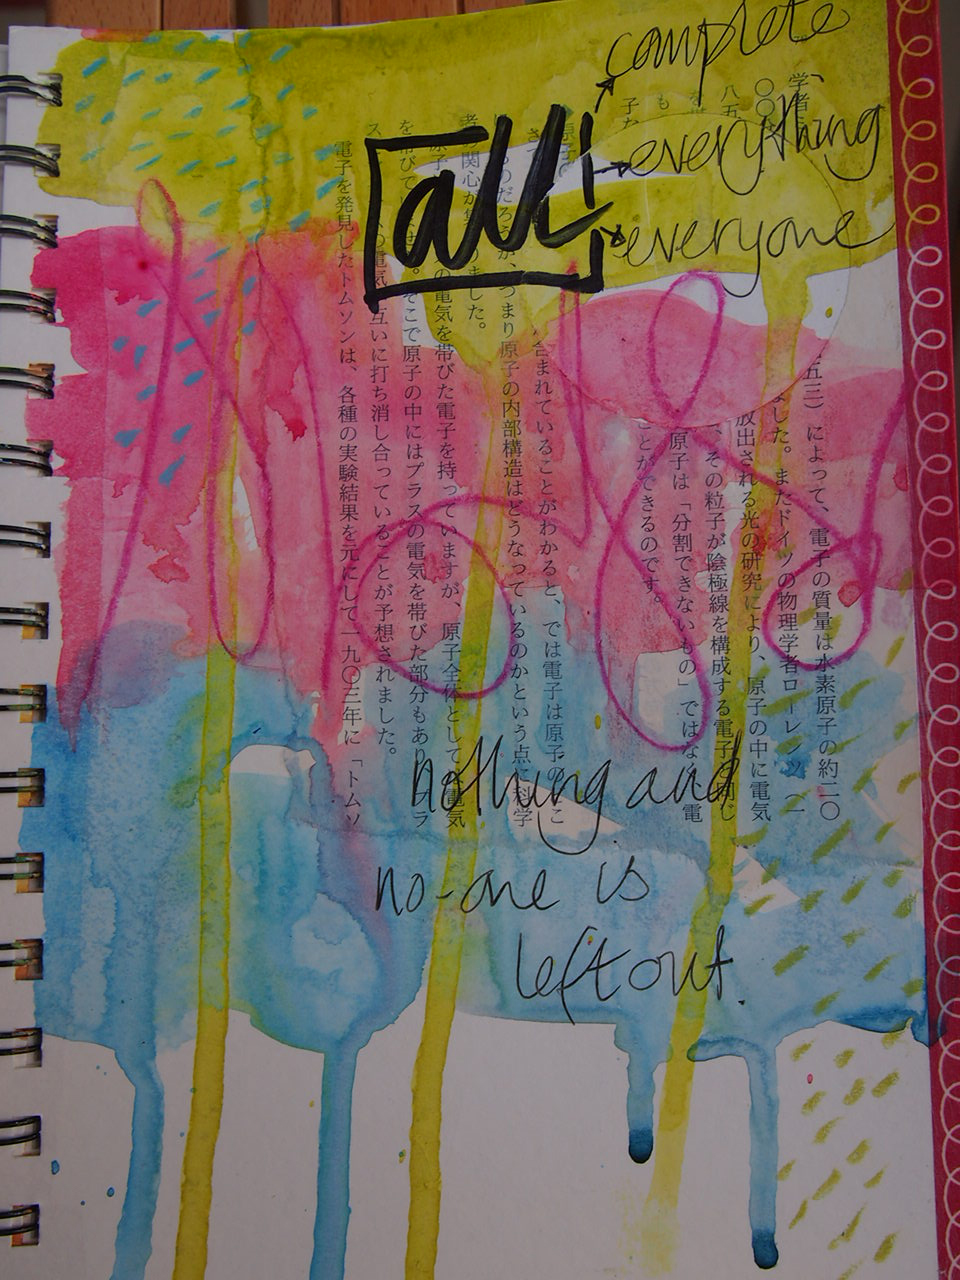 complete
all!
everything
everyone
nothing and
no-one is
left out.
学者 五三）によって、電子の質量は水素原子の約二〇
〇〇 ました。またドイツの物理学者ローレンツ（一
八五 放出される光の研究により、原子の中に電気
も 、その粒子が陰極線を構成する電子 同じ
原子は「分割できないもの」ではな 電
子 とができるのです。
含まれていることがわかると、では電子は原子の こ
のだろうか、つまり原子の内部構造はどうなっているのかという点に科学
者の関心が ました。
原子 の電気を帯びた電子を持っていますが、原子全体として 電気
を帯びて せ 。そこで原子の中にはプラスの電気を帯びた部分もあり ラ
ス の電気 互いに打ち消し合っていることが予想されました。
電子を発見したトムソンは、各種の実験結果を元にして一九〇三年に「トムソ